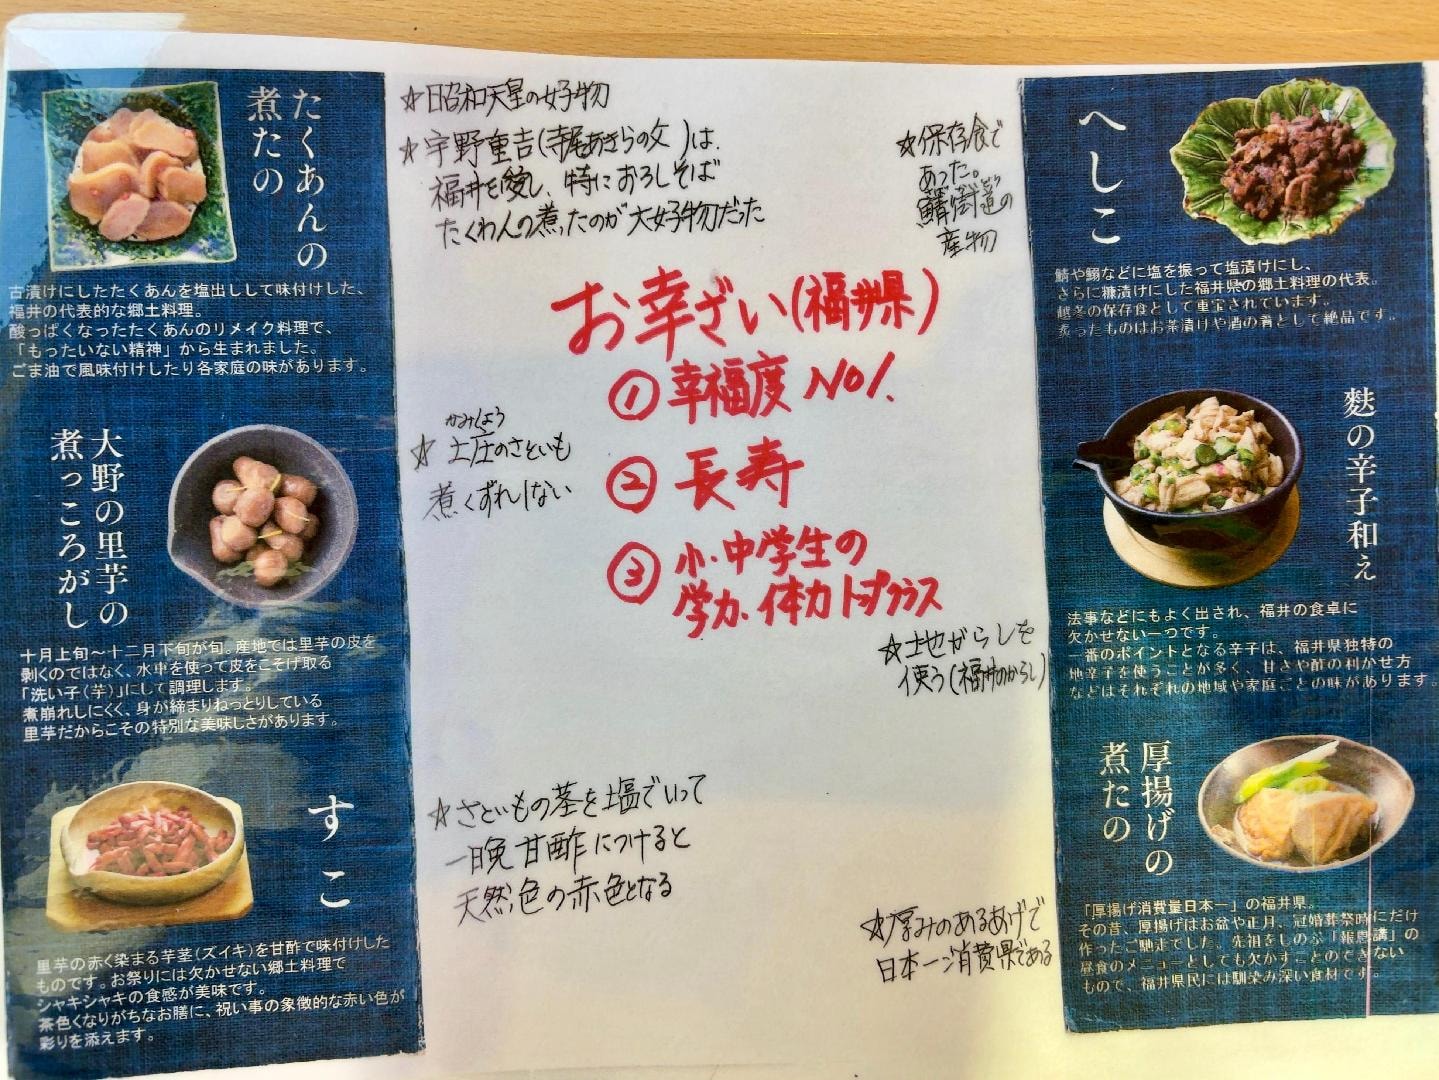 たくあんの
煮たの
古漬けにしたたくあんを塩出しして味付けした、
福井の代表的な郷土料理。
酸っぱくなったたくあんのリメイク料理で、
「もったいない精神」から生まれました。
ごま油で風味付けしたり各家庭の味があります。
大野の里芋の
煮っころがし
十月上旬〜十二月下旬が旬。産地では里芋の皮を
剥くのではなく、水車を使って皮をこそげ取る
「洗い子(芋)」にして調理します。
煮崩れしにくく、身が締まりねっとりしている
里芋だからこその特別な美味しさがあります。
すこ
里芋の赤く染まる芋茎(ズイキ)を甘酢で味付けした
ものです。お祭りには欠かせない郷土料理で
シャキシャキの食感が美味です。
茶色くなりがちなお膳に、祝い事の象徴的な赤い色が
彩りを添えます。
☆昭和天皇の好物
☆宇野重吉(寺尾あきらの父)は、
福井を愛し、特におろしそば
たくわんの煮たのが大好物だった
☆保存食で
あった。
鯖街道の
産物
お幸ざい(福井県)
①幸福度NO1.
②長寿
③小・中学生の
学力、体力トップクラス
かみしょう
☆上庄のさといも
煮くずれしない
☆地がらしを
使う(福井のからし)
☆さといもの茎を塩でいって
一晩甘酢につけると
天然色の赤色となる
☆厚みのあるあげで
日本一消費県である
へしこ
鯖や鰯などに塩を振って塩漬けにし、
さらに糠漬けにした福井県の郷土料理の代表。
越冬の保存食として重宝されています。
炙ったものはお茶漬けや酒の肴として絶品です。
麩の辛子和え
法事などにもよく出され、福井の食卓に
欠かせない一つです。
一番のポイントとなる辛子は、福井県独特の
地辛子を使うことが多く、甘さや酢の利かせ方
などはそれぞれの地域や家庭ごとの味があります。
厚揚げの
煮たの
「厚揚げ消費量日本一」の福井県。
その昔、厚揚げはお盆や正月、冠婚葬祭時にだけ
作ったご馳走でした。先祖をしのぶ「報恩講」の
昼食のメニューとしても欠かすことのできない
もので、福井県民には馴染み深い食材です。